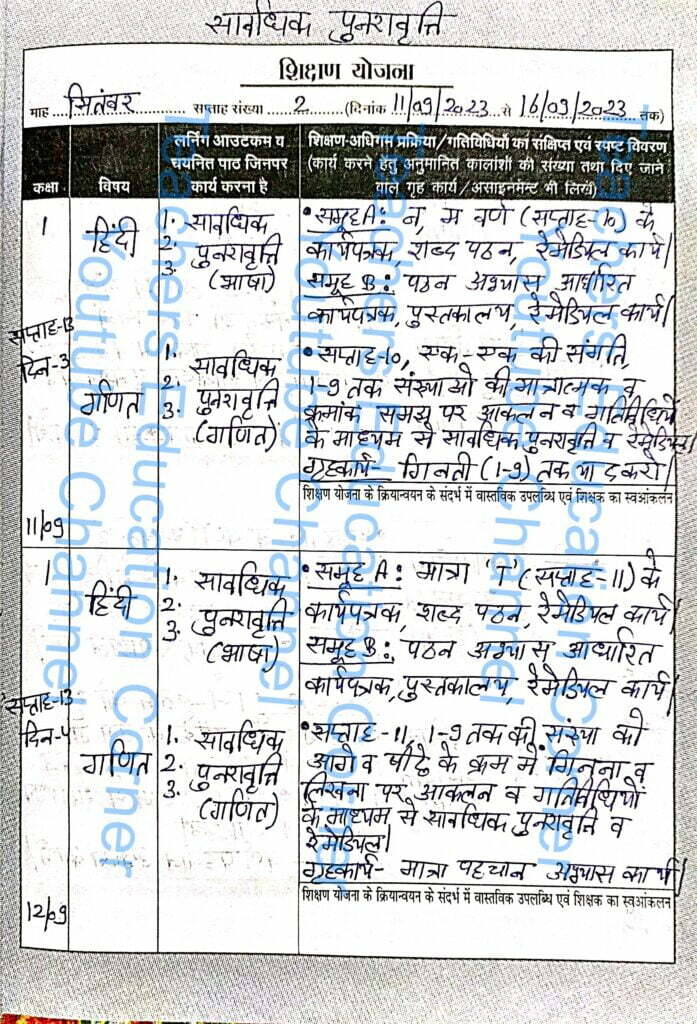 सावधिक पुनरावृत्ति
शिक्षण योजना
माह सितंबर सप्ताह संख्या 2 (दिनांक 11/09/2023 से 16/09/2023 तक)
कक्षा
विषय
लर्निंग आउटकम व
चयनित पाठ जिनपर
कार्य करना है
शिक्षण-अधिगम प्रक्रिया/गतिविधियों का संक्षिप्त एवं स्पष्ट विवरण
(कार्य करने हेतु अनुमानित कालांशों की संख्या तथा दिए जाने
वाले गृह कार्य/असाइनमेन्ट भी लिखें)
1
हिंदी
1. सावधिक
2. पुनरावृत्ति
3. (भाषा)
• समूह A: न, म वर्ण (सप्ताह-10) के
कार्यपत्रक, शब्द पठन, रेमेडियल कार्य।
समूह B: पठन अभ्यास आधारित
कार्यपत्रक, पुस्तकालय, रेमेडियल कार्य।
सप्ताह-13
दिन-3
गणित
1. सावधिक
2. पुनरावृत्ति
3. (गणित)
• सप्ताह-10, एक-एक की संगति,
1-9 तक संख्याओं की मात्रात्मक व
क्रमांक समझ पर आकलन व गतिविधियों
के माध्यम से सावधिक पुनरावृत्ति व रेमेडियल।
गृहकार्य- गिनती (1-9) तक याद करो।
शिक्षण योजना के क्रियान्वयन के संदर्भ में वास्तविक उपलब्धि एवं शिक्षक का स्वआंकलन
11/09
1
हिंदी
1. सावधिक
2. पुनरावृत्ति
3. (भाषा)
• समूह A: मात्रा 'ा' (सप्ताह-11) के
कार्यपत्रक, शब्द पठन, रेमेडियल कार्य।
समूह B: पठन अभ्यास आधारित
कार्यपत्रक, पुस्तकालय, रेमेडियल कार्य।
सप्ताह-13
दिन-4
गणित
1. सावधिक
2. पुनरावृत्ति
3. (गणित)
• सप्ताह-11, 1-9 तक की संख्या को
आगे व पीछे के क्रम में गिनना व
लिखना पर आकलन व गतिविधियों
के माध्यम से सावधिक पुनरावृत्ति व
रेमेडियल।
गृहकार्य- मात्रा पहचान अभ्यास कार्य।
शिक्षण योजना के क्रियान्वयन के संदर्भ में वास्तविक उपलब्धि एवं शिक्षक का स्वआंकलन
12/09
Teachers Education Corner
Youtube Channel
Teachers Education Corner
Youtube Channel
Teachers Education Corner
Youtube Channel